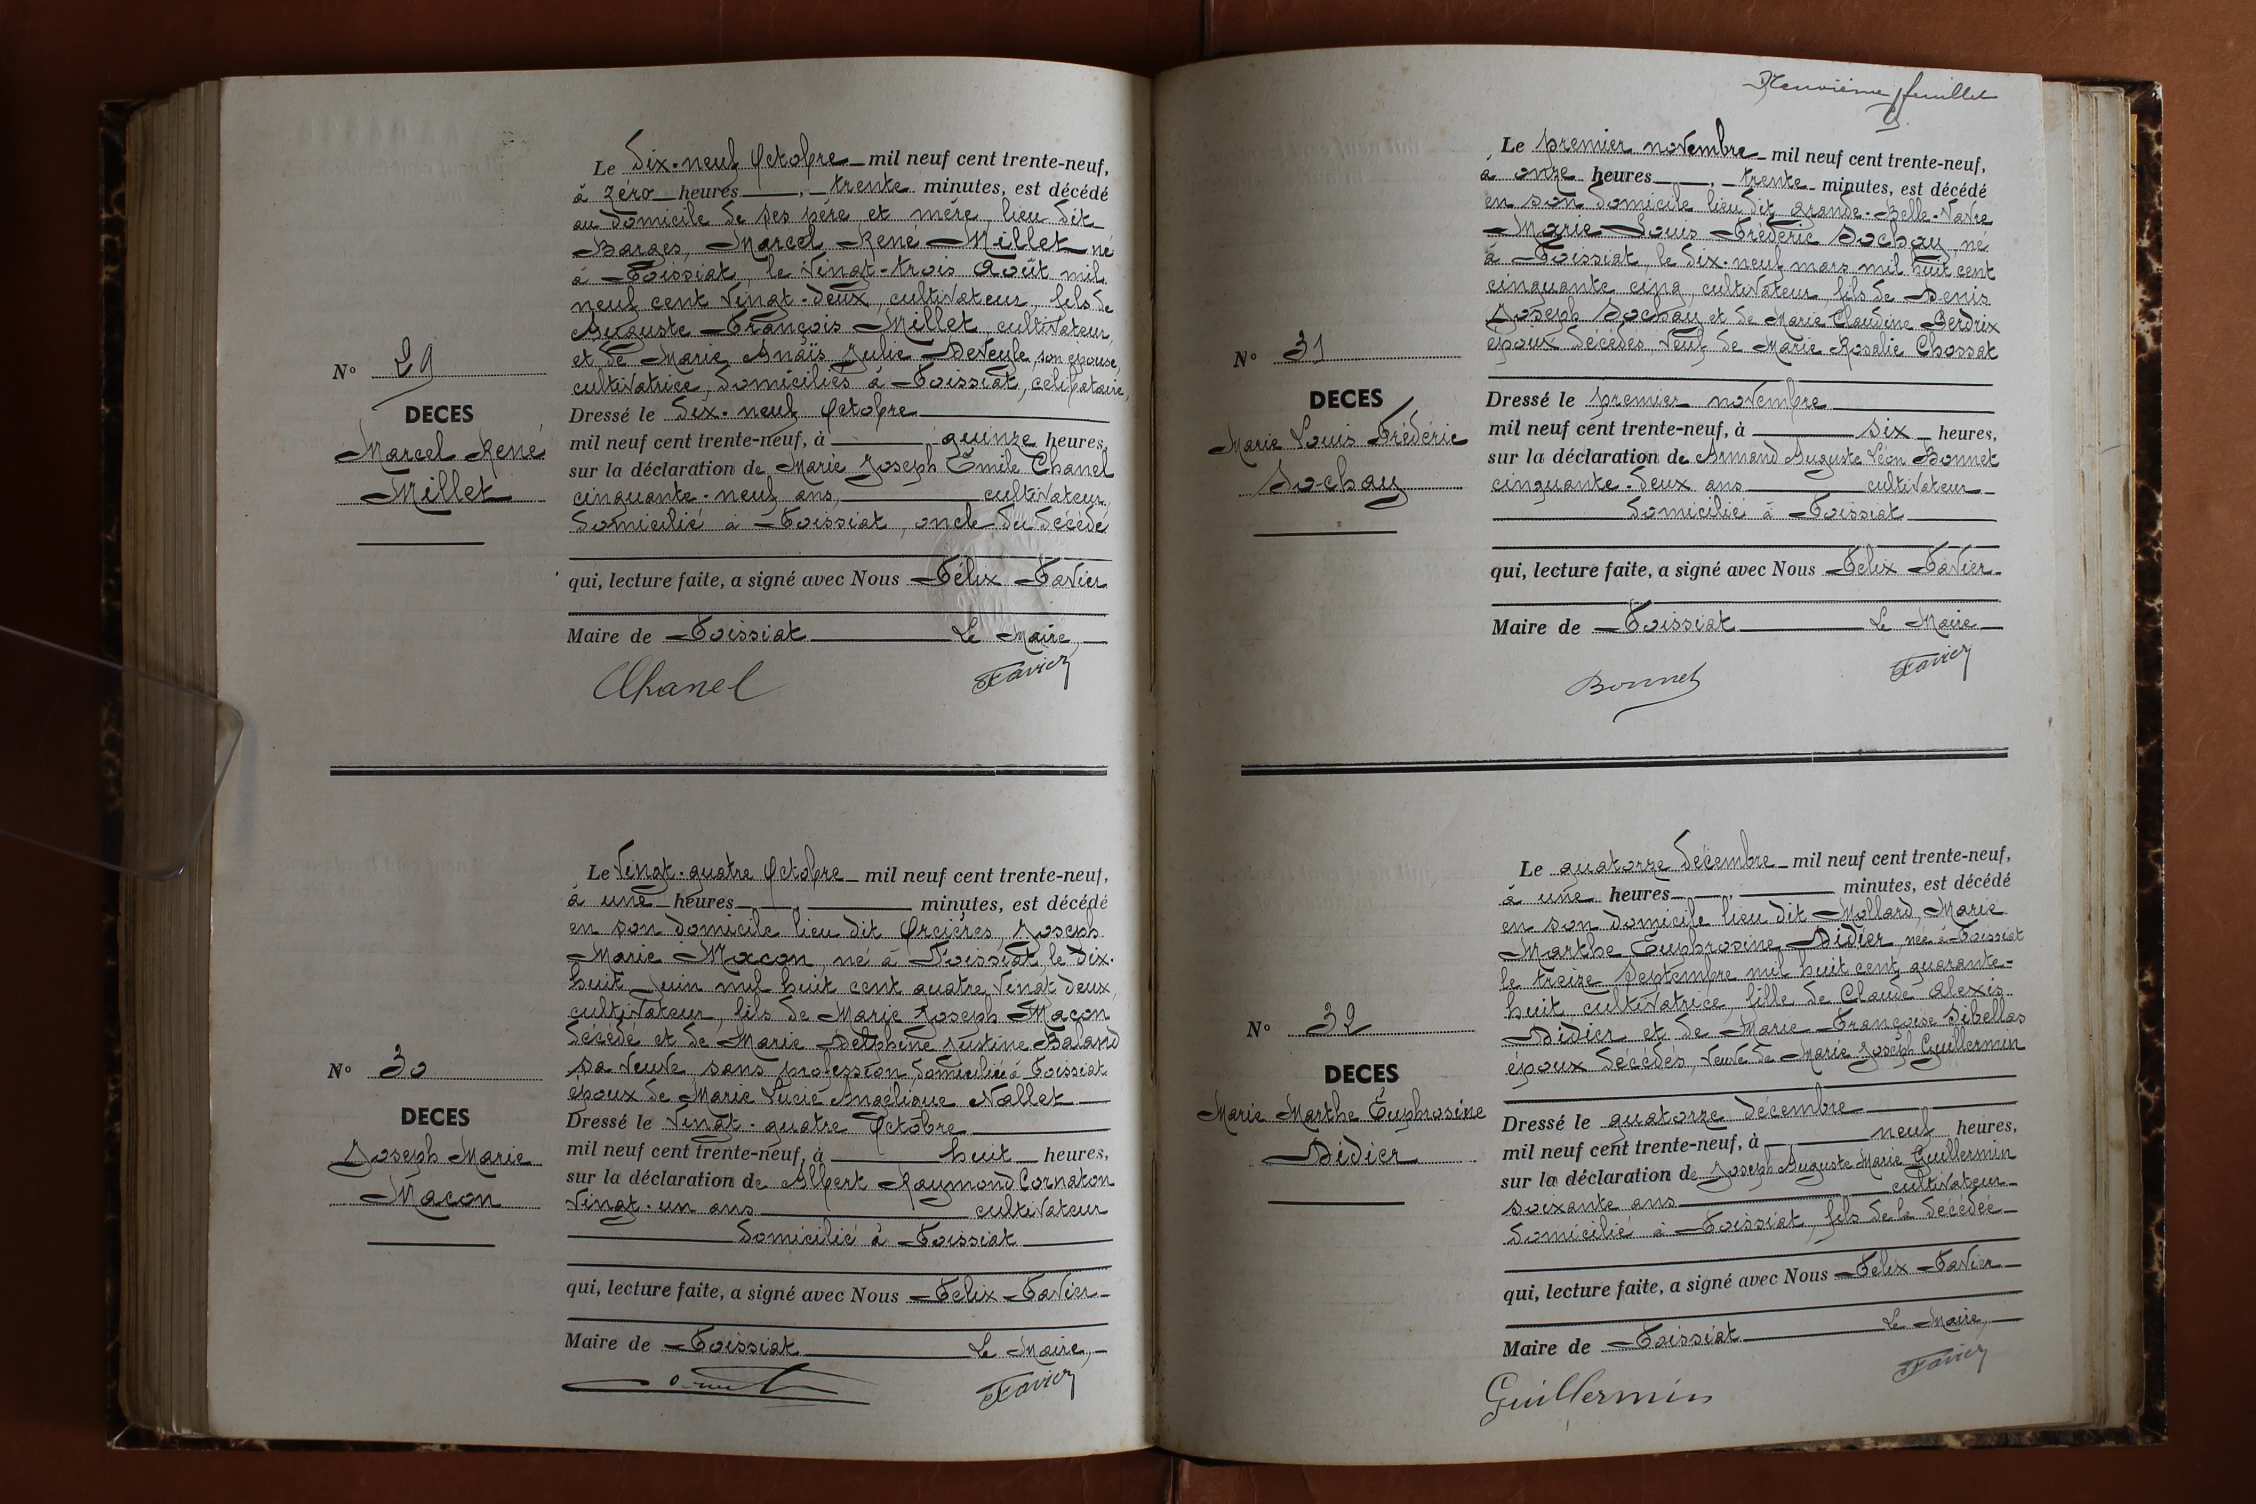 Le Dix-neuf Octobre mil neuf cent trente-neuf,
à zéro heures, trente minutes, est décédé
au domicile de ses père et mère lieu dit
Barges, Marcel René Millet né
à Foissiat, le Vingt-trois Août mil
neuf cent Vingt-deux, cultivateur, fils de
Auguste François Millet, cultivateur,
et de Marie Anaïs Julie Deveyle, son épouse,
cultivatrice, domiciliés à Foissiat, célibataire,
N° 29
DECES
Marcel René
Millet
Dressé le Dix-neuf Octobre
mil neuf cent trente-neuf, à quinze heures,
sur la déclaration de Marie Joseph Émile Chanel
cinquante-neuf ans, cultivateur,
domicilié à Foissiat, oncle du décédé
qui, lecture faite, a signé avec Nous Félix Favier
Maire de Foissiat Le Maire,
Chanel Favier
Le Vingt-quatre Octobre mil neuf cent trente-neuf,
à une heures, minutes, est décédé
en son domicile lieu dit Orcières, Joseph
Marie Macon, né à Foissiat, le Dix-
huit Juin mil huit cent quatre Vingt deux,
cultivateur, fils de Marie Joseph Macon
décédé et de Marie Delphine Justine Baland
sa veuve sans profession domiciliée à Foissiat
époux de Marie Lucie Angélique Nallet
N° 30
DECES
Joseph Marie
Macon
Dressé le Vingt-quatre Octobre
mil neuf cent trente-neuf, à huit heures,
sur la déclaration de Albert Raymond Cornaton
Vingt-un ans cultivateur
domicilié à Foissiat
qui, lecture faite, a signé avec Nous Félix Favier
Maire de Foissiat Le Maire,
Favier
Neuvième feuillet
Le premier novembre mil neuf cent trente-neuf,
à onze heures, trente minutes, est décédé
en son domicile lieu dit Grande-Belle-Vavre
Marie Louis Frédéric Sochay, né
à Foissiat, le Dix-neuf mars mil huit cent
cinquante cinq, cultivateur, fils de Denis
Joseph Sochay et de Marie Claudine Perdrix
époux décédés, Veuf de Marie Rosalie Chossat
N° 31
DECES
Marie Louis Frédéric
Sochay
Dressé le premier novembre
mil neuf cent trente-neuf, à six heures,
sur la déclaration de Armand Auguste Léon Bonnet
cinquante-deux ans cultivateur
domicilié à Foissiat
qui, lecture faite, a signé avec Nous Félix Favier
Maire de Foissiat Le Maire
Bonnet Favier
Le quatorze décembre mil neuf cent trente-neuf,
à une heures, minutes, est décédé
en son domicile lieu dit Mollard, Marie
Marthe Euphrosine Didier, née à Foissiat
le treize septembre mil huit cent quarante-
huit, cultivatrice, fille de Claude Alexis
Didier et de Marie Françoise Sibellas
époux décédés, veuve de Marie Joseph Guillermin
N° 32
DECES
Marie Marthe Euphrosine
Didier
Dressé le quatorze décembre
mil neuf cent trente-neuf, à neuf heures,
sur la déclaration de Joseph Auguste Marie Guillermin
soixante ans cultivateur
domicilié à Foissiat, fils de la décédée
qui, lecture faite, a signé avec Nous Félix Favier
Maire de Foissiat Le Maire,
Guillermin Favier